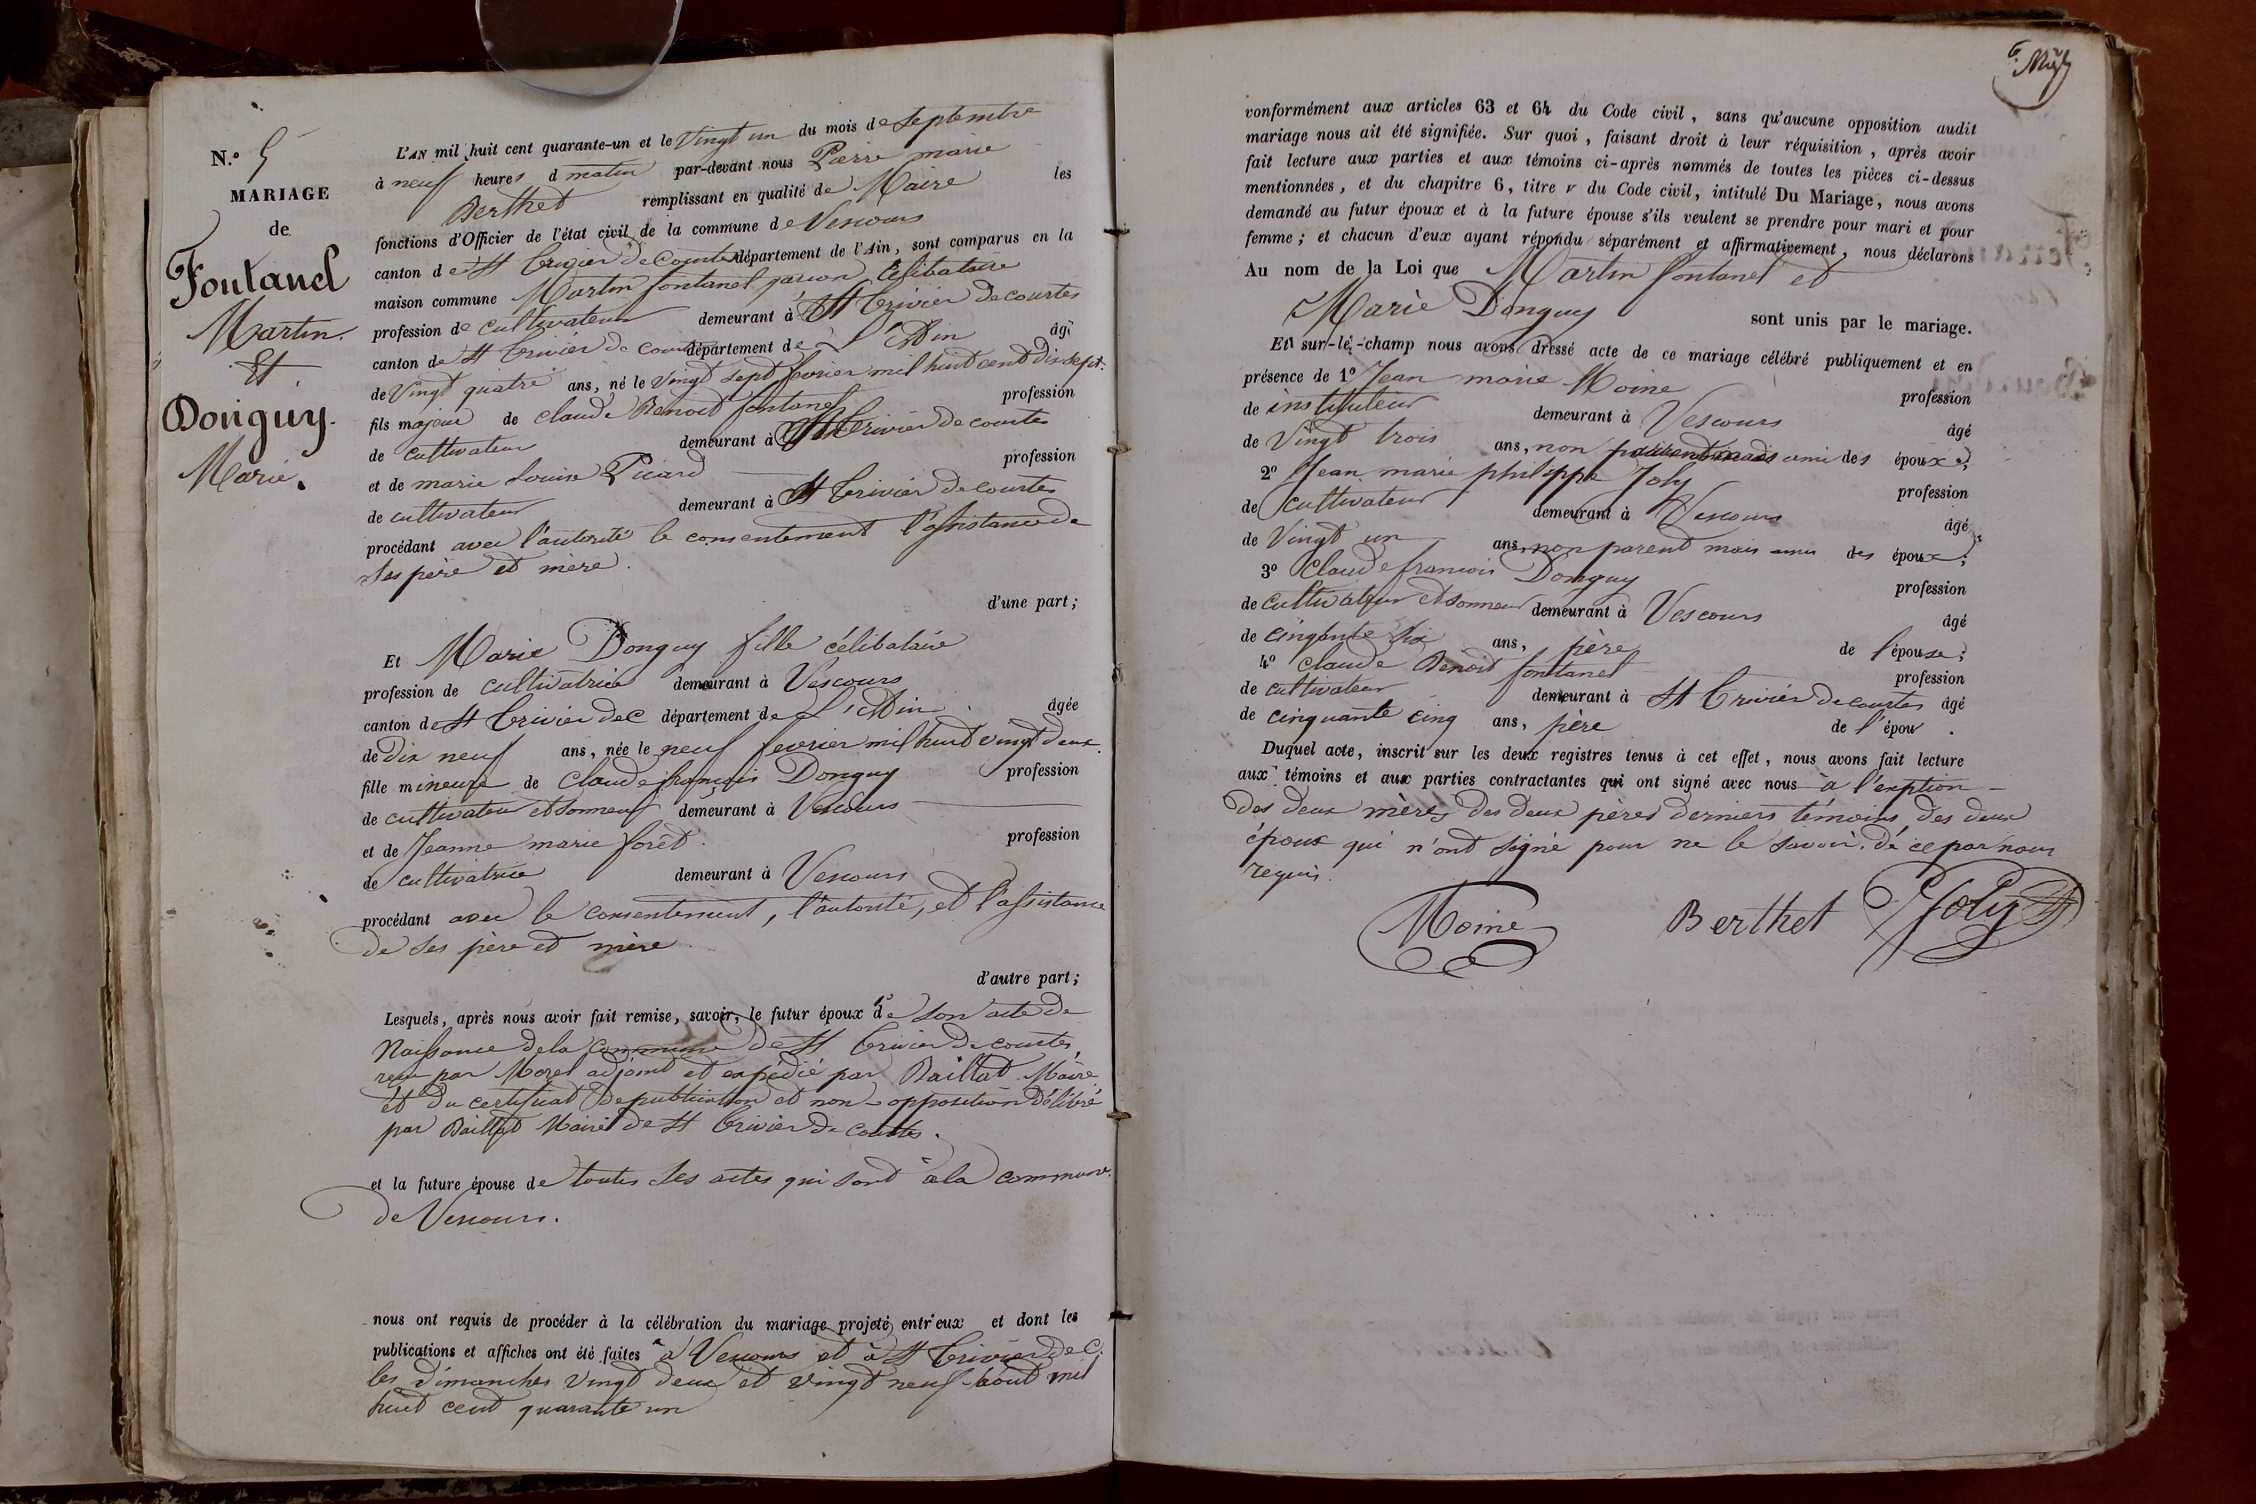 N.º 5
MARIAGE
de
Fontanel
Martin.
Et
Donguy.
Marie.
L'AN mil huit cent quarante-un et le Vingt un du mois de Septembre
à neuf heures d matin par-devant nous Pierre marie
Berthet remplissant en qualité de Maire les
fonctions d'Officier de l'état civil de la commune de Vescours
canton de St Trivier de Courtes département de l'Ain, sont comparus en la
maison commune Martin fontanel garcon Célibataire
profession de cultivateur demeurant à St Trivier de courtes
canton de St Trivier de Courtes département de L'Ain âgé
de Vingt quatre ans, né le Vingt sept fevrier mil huit cent dix sept.
fils majeur de claude Benoit fontanel profession
de cultivateur demeurant à St Trivier de courtes
et de marie Louise Picard profession
de cultivateur demeurant à St Trivier de Courtes
procédant avec l'autorité le consentement l'assistance de
ses père et mère.
d'une part;
Et Marie Donguy fille célibataire
profession de cultivatrice demeurant à Vescours
canton de St Trivier de C département de L'Ain. âgée
de Dix neuf ans, née le neuf fevrier mil huit vingt deux.
fille mineure de Claude françois Donguy profession
de cultivateur et sonneur demeurant à Vescours
et de Jeanne marie forêt. profession
de cultivatrice demeurant à Vescours
procédant avec le consentement, l'autorité, et l'assistance
de ses père et mère
d'autre part;
Lesquels, après nous avoir fait remise, savoir, le futur époux de son acte de
Naissance de la Commune de St Trivier de courtes,
reçu par Morel adjoint et expédié par Baillat Maire
et du certificat de publication et non-opposition délivré
par Baillat Maire de St Trivier de Courtes.
et la future épouse de toutes ses actes qui sont à la commune.
de Vescours.
nous ont requis de procéder à la célébration du mariage projeté entr'eux et dont les
publications et affiches ont été faites à Vescours et à St Trivier de C.
les dimanches vingt deux et vingt neuf août mil
huit cent quarante un
conformément aux articles 63 et 64 du Code civil, sans qu'aucune opposition audit
mariage nous ait été signifiée. Sur quoi, faisant droit à leur réquisition, après avoir
fait lecture aux parties et aux témoins ci-après nommés de toutes les pièces ci-dessus
mentionnées, et du chapitre 6, titre v du Code civil, intitulé Du Mariage, nous avons
demandé au futur époux et à la future épouse s'ils veulent se prendre pour mari et pour
femme; et chacun d'eux ayant répondu séparément et affirmativement, nous déclarons
Au nom de la Loi que Martin fontanel et
Marie Donguy sont unis par le mariage.
Et sur-le-champ nous avons dressé acte de ce mariage célébré publiquement et en
présence de 1º Jean marie Moine profession
de instituteur demeurant à Vescours âgé
de Vingt trois ans, non parent mais ami des époux;
2º Jean marie philippe Joly profession
de cultivateur demeurant à Vescours âgé
de Vingt un ans, non parent mais ami des époux;
3º Claude francois Donguy profession
de cultivateur et sonneur demeurant à Vescours âgé
de cinqante six ans, père de l'épouse;
4º claude Benoit fontanel profession
de cultivateur demeurant à St Trivier de courtes âgé
de cinquante cinq ans, père de l'épou.
Duquel acte, inscrit sur les deux registres tenus à cet effet, nous avons fait lecture
aux témoins et aux parties contractantes qui ont signé avec nous à l'exeption
des deux mères, des deux pères derniers témoins des deux
époux qui n'ont signé pour ne le savoir, de ce par nous
requis.
Moine Berthet Joly